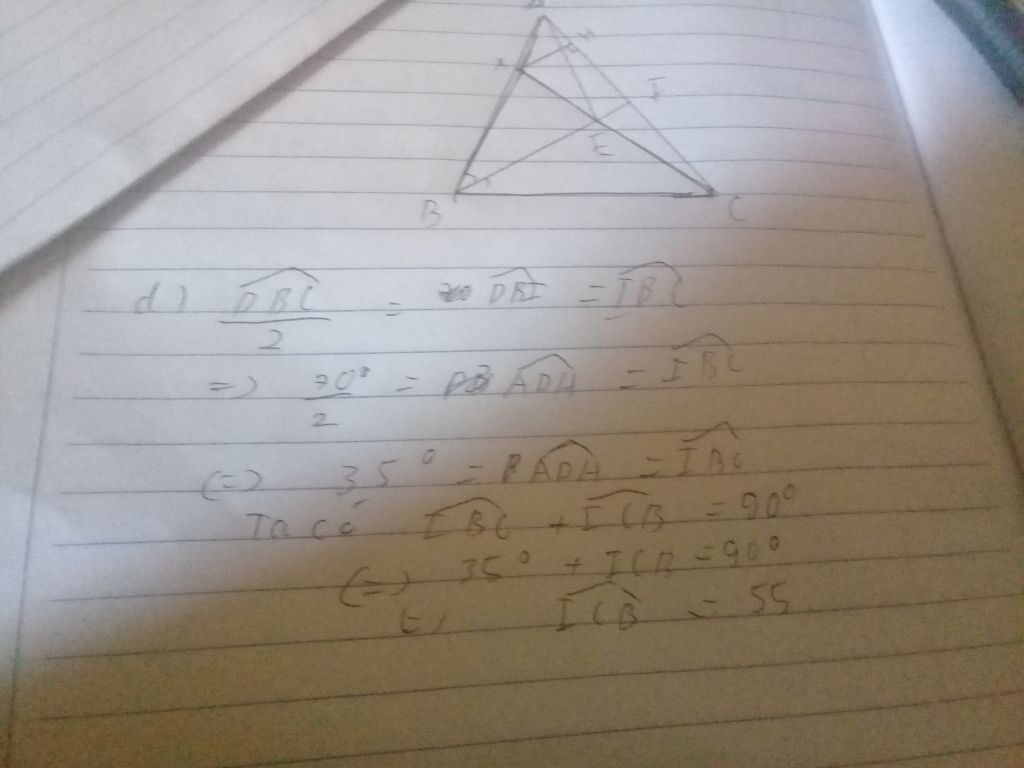 I
E
B C
d) DBC / 2 = DBI = IBC
=> 70° / 2 = ADH = IBC
(=) 35° = ADH = IBC
Ta có IBC + ICB = 90°
(=) 35° + ICB = 90°
ICB = 55